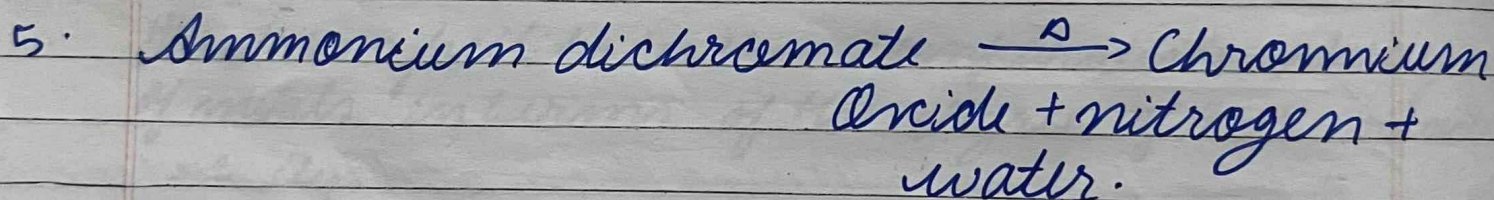 5. Ammonium dichromate —Δ→ Chromium
Oxide + nitrogen +
water.